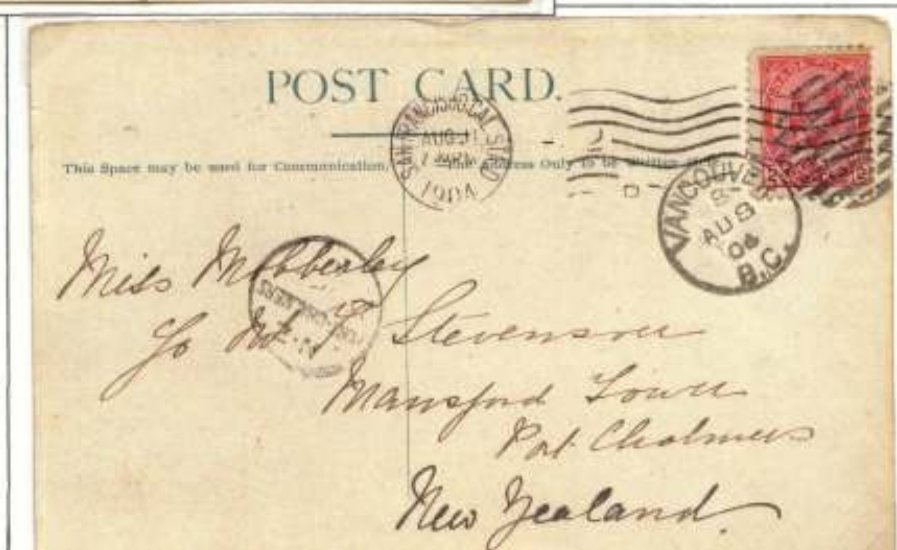 POST CARD.
This Space may be used for Communication. The Address Only to be Written Here
SAN FRANCISCO, CAL. STA. D
AUG 11
1904
VANCOUVER
AU 8
04
B.C.
Miss Mobberley
c/o Mr. T Stevenson
Mansford Town
Port Chalmers
New Zealand.